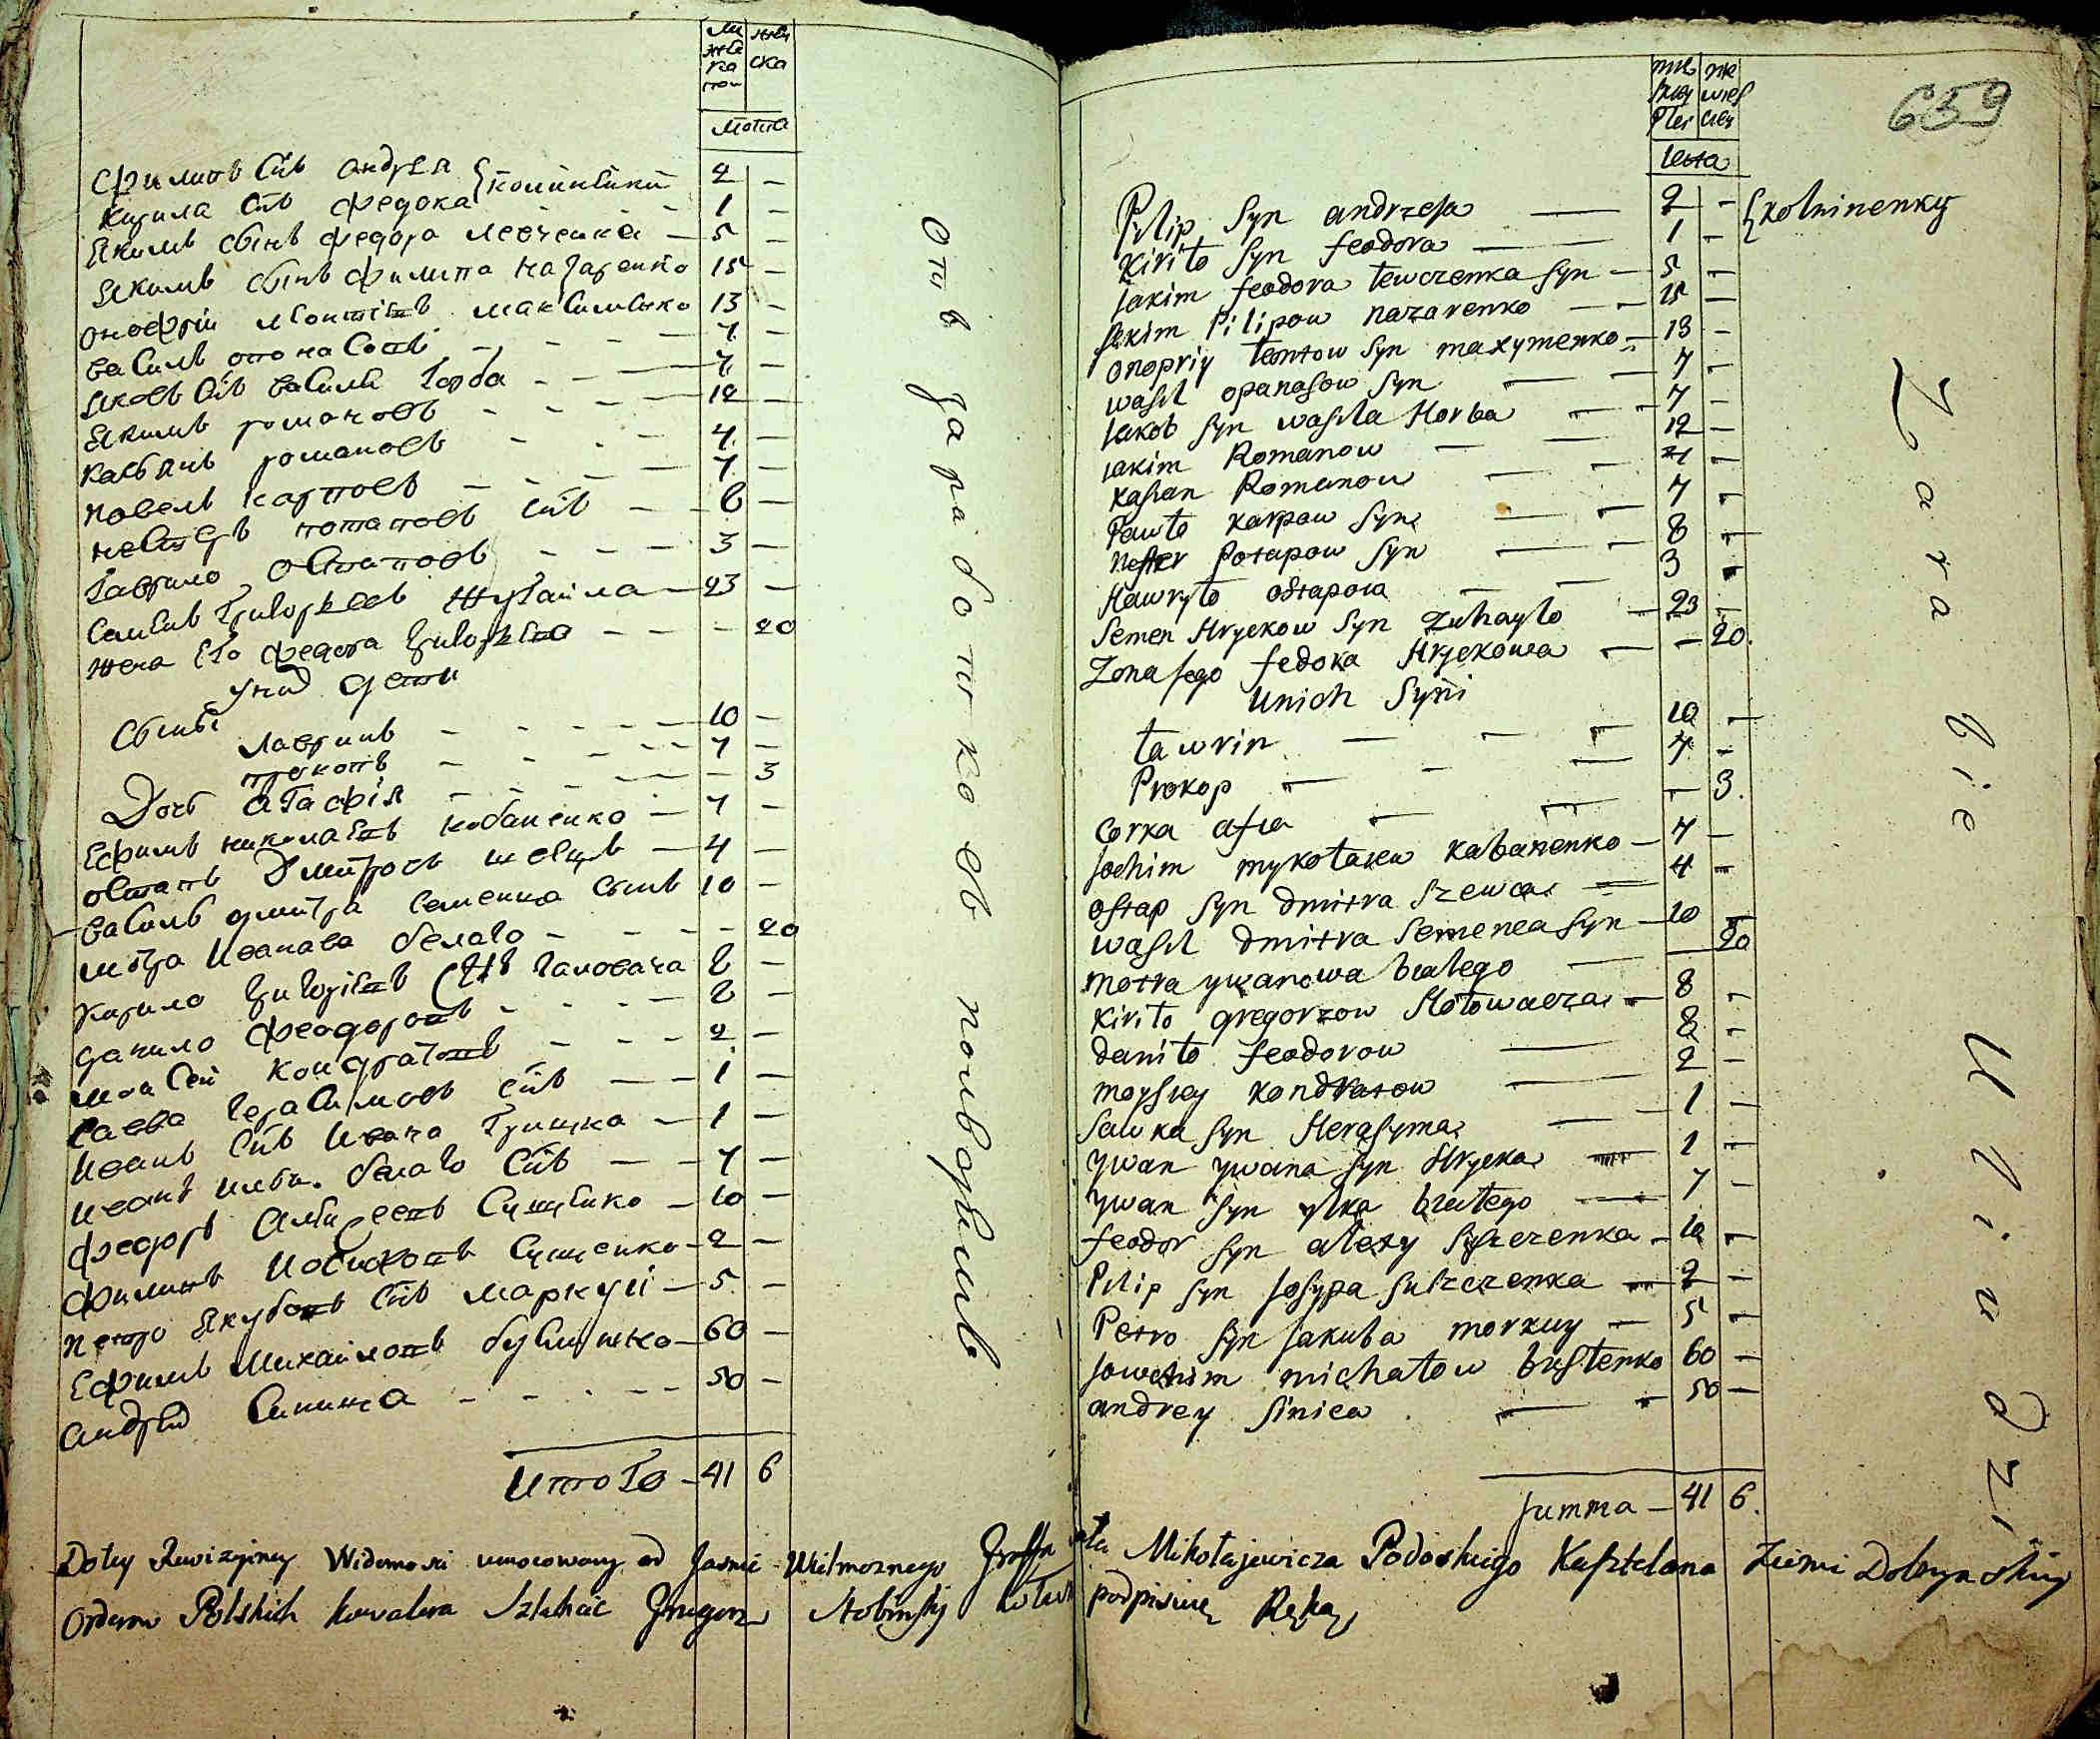 мотка
Филипъ Снъ андрея
Кирила Снъ федора 1 -
Якимъ сынъ федора левченка - 5 -
Якимъ сынъ филипа назаренко 15 -
онофрiи максименко 13 -
василь опонасовъ 7 -
Яковъ Снъ василя Горба 7 -
Якимъ романовъ 12 -
касьянъ романовъ 4 -
повелъ карповъ 7 -
нестеръ потаповъ Снъ 8 -
Гаврило остаповъ 3 -
семенъ григорьевъ жугайла 23 -
жена его федора григорьева - 20
у них дети
Сыны лавринъ 10 -
прокопъ 7 -
Дочь агафiя - 3
Ефимъ николаевъ кобаненко 7 -
остапъ Дмитровъ швецъ 4 -
василь дмитра семенца сынъ 10 -
мотра иванова белаго - 20
кирило григорiевъ Снъ галовача 8 -
данило феодоровъ 8 -
моисеи кондратовъ 2 -
савва герасимовъ Снъ 1 -
иванъ Снъ ивана Гришка 1 -
иванъ белаго Снъ 7 -
феодоръ Сущенко 10 -
филипъ иосиповъ Сущенко 2 -
петро якубовъ Снъ маркуй 5 -
Ефимъ михайловъ 60 -
андрей Синица 50 -
итого 41 6
отъ заработковъ
659
leta
Pilip Syn andrzeja 2 - Szkolninenky
Kiriło Syn feodora 1 -
Jakim feodora lewczenka Syn 5 -
Jakim Pilipow nazarenko 15 -
onopriy Syn maxymenko 13 -
wasil opanasow Syn 7 -
Jakob Syn wasila Horba 7 -
iakim Romanow 12 -
kasian Romanow 4 -
Pawło karpow Syn 7 -
Nester Potapow Syn 8 -
Hawryło ostapow 3 -
Semen Hryckow Syn Zuhayło 23 -
Zona jego fedora Hryckowa - 20.
U nich Syni
ławrin 10 -
Prokop 7 -
Corka afia - 3.
Jochim mykołaiew kabanenko 7 -
ostap Syn dmitra Szewca 4 -
wasil dmitra Semenca Syn 10 -
motra ywanowa białego 20
Kiriło gregorzow Hołowacza 8 -
daniło feodorow 8 -
moysiey kondratow 2 -
Sawka Syn Herasyma 1 -
ywan ywana Syn Hrycka 1 -
ywan Syn ylka białego 7 -
feodor Syn alexy Suszczenka 10 -
Pilip Syn Josypa Suszczenka 2 -
Petro Syn Jakuba morkuy 5 -
Jowchim michałow bustenko 60 -
andrey Sinica 50 -
Summa 41 6.
Zarabie
Dotey Rewizyiney Widomosci umocowany od Jasnie Wielmoznego Graffa Mikołajewicza Podoskiego Kasztelana Ziemi Dobrzynskiey
Orderow Polskich kawalera Szlachcic Grzegorz podpisuię Ręką